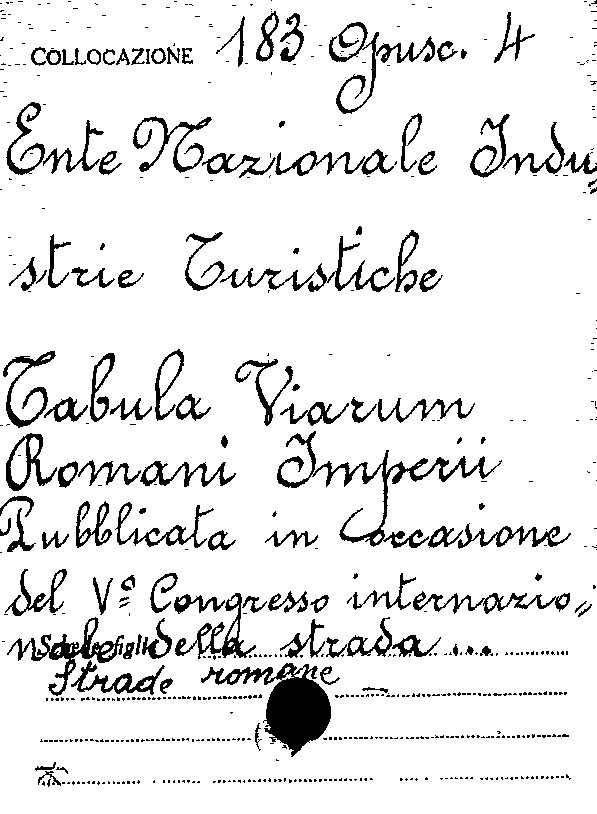 COLLOCAZIONE 183 Opusc. 4
Ente Nazionale Indu=
strie Turistiche
Tabula Viarum
Romani Imperii
Pubblicata in occasione
del Vº Congresso internazio=
nale della strada ...
Strade romane